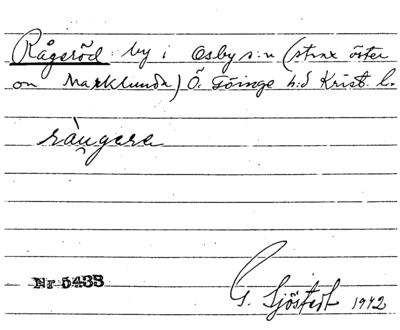 Rågeröd: by i Osby s:n (strax öster
om Marklunda) Ö. Göinge h:d Krist. l.
ràu̯gara
Nr 5433
G. Sjöstedt 1942